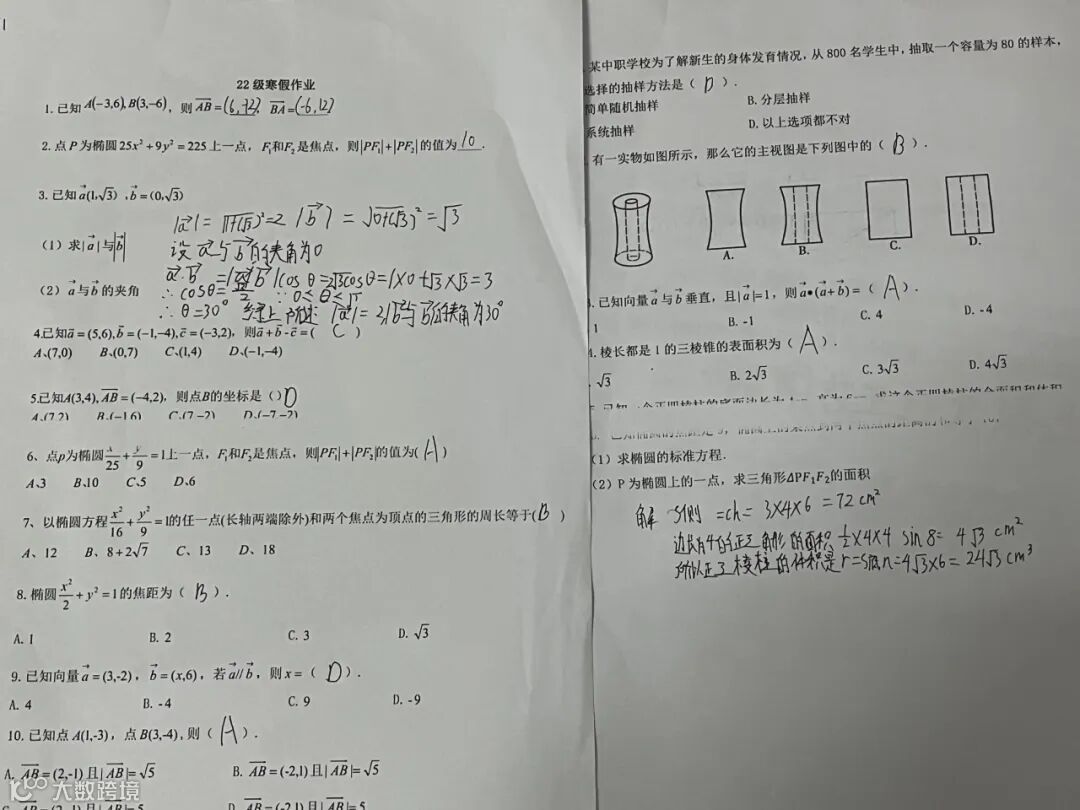 22 级寒假作业
1. 已知 A(−3,6), B(3,−6)，则 AB = (6, -12)，BA = (-6, 12)
2. 点 P 为椭圆 25x² + 9y² = 225 上一点，F₁和F₂是焦点，则|PF₁|+|PF₂| 的值为 10 .
3. 已知 a(1,√3)，b =（0,√3）
|a| = √1+(√3)² = 2 |b| = √0+(√3)² = √3
（1）求|a|与|b|
设a与b的夹角为θ
（2）a与b的夹角
a·b = |a||b|cosθ = 2√3cosθ = 1×0+√3×√3 = 3
∴θ=30° 综上所述 |a|=2,
4.已知a = (5,6), b = (−1,−4), c = (−3,2)，则a + b - c = ( C )
A、(7,0) B、(0,7) C、(1,4) D、(−1,−4)
5.已知A(3,4), AB = (−4,2)，则点B的坐标是（）D
A、(7,2) B、(−1,6) C、(7,−2) D、(−7,−2)
6、点p为椭圆x/25 + y/9 = 1上一点，F₁和F₂是焦点，则|PF₁|+|PF₂|的值为( A )
A、3 B、10 C、5 D、6
7、以椭圆方程x²/16 + y²/9 = 1的任一点(长轴两端除外)和两个焦点为顶点的三角形的周长等于( B )
A、12 B、8 + 2√7 C、13 D、18
8. 椭圆x²/2 + y² = 1的焦距为（ B ）.
A. 1 B. 2 C. 3 D. √3
9. 已知向量a = (3,-2)，b = (x,6)，若a//b，则x =（ D ）.
A. 4 B. -4 C. 9 D. -9
10. 已知点 A(1,-3)，点 B(3,-4),则（ A ）.
A. AB = (2,-1) 且| AB |= √5 B. AB = (-2,1) 且| AB |= √5
C. AB = (2,-1) 且| AB |= 5 D. AB = (-2,1) 且| AB |= 5
大数跨境
某中职学校为了解新生的身体发育情况，从 800 名学生中，抽取一个容量为 80 的样本，
选择的抽样方法是（ D ）.
简单随机抽样 B. 分层抽样
系统抽样 D. 以上选项都不对
有一实物如图所示，那么它的主视图是下列图中的（ B ）.
A. B. C. D.
3. 已知向量a与b垂直，且|a|=1，则a•(a+b) =（ A ）.
1 B. -1 C. 4 D. -4
4. 棱长都是 1 的三棱锥的表面积为（ A ）.
√3 B. 2√3 C. 3√3 D. 4√3
（1）求椭圆的标准方程.
（2）P 为椭圆上的一点，求三角形ΔPF₁F₂的面积
解 S侧 = ch = 3×4×6 = 72 cm²
边长为4的正三角形的面积 ½×4×4 sin 8= 4√3 cm²
所以正三棱柱的体积是 r=S底n=4√3×6= 24√3 cm³